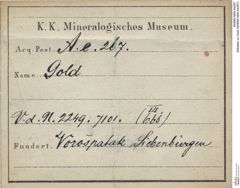 K. K. Mineralogisches Museum.
Acq. Post. A. e. 267.
Name Gold
V. d. N. 2249. 7101. (III/666)
Fundort. Vorošpatak Siebenbürgen